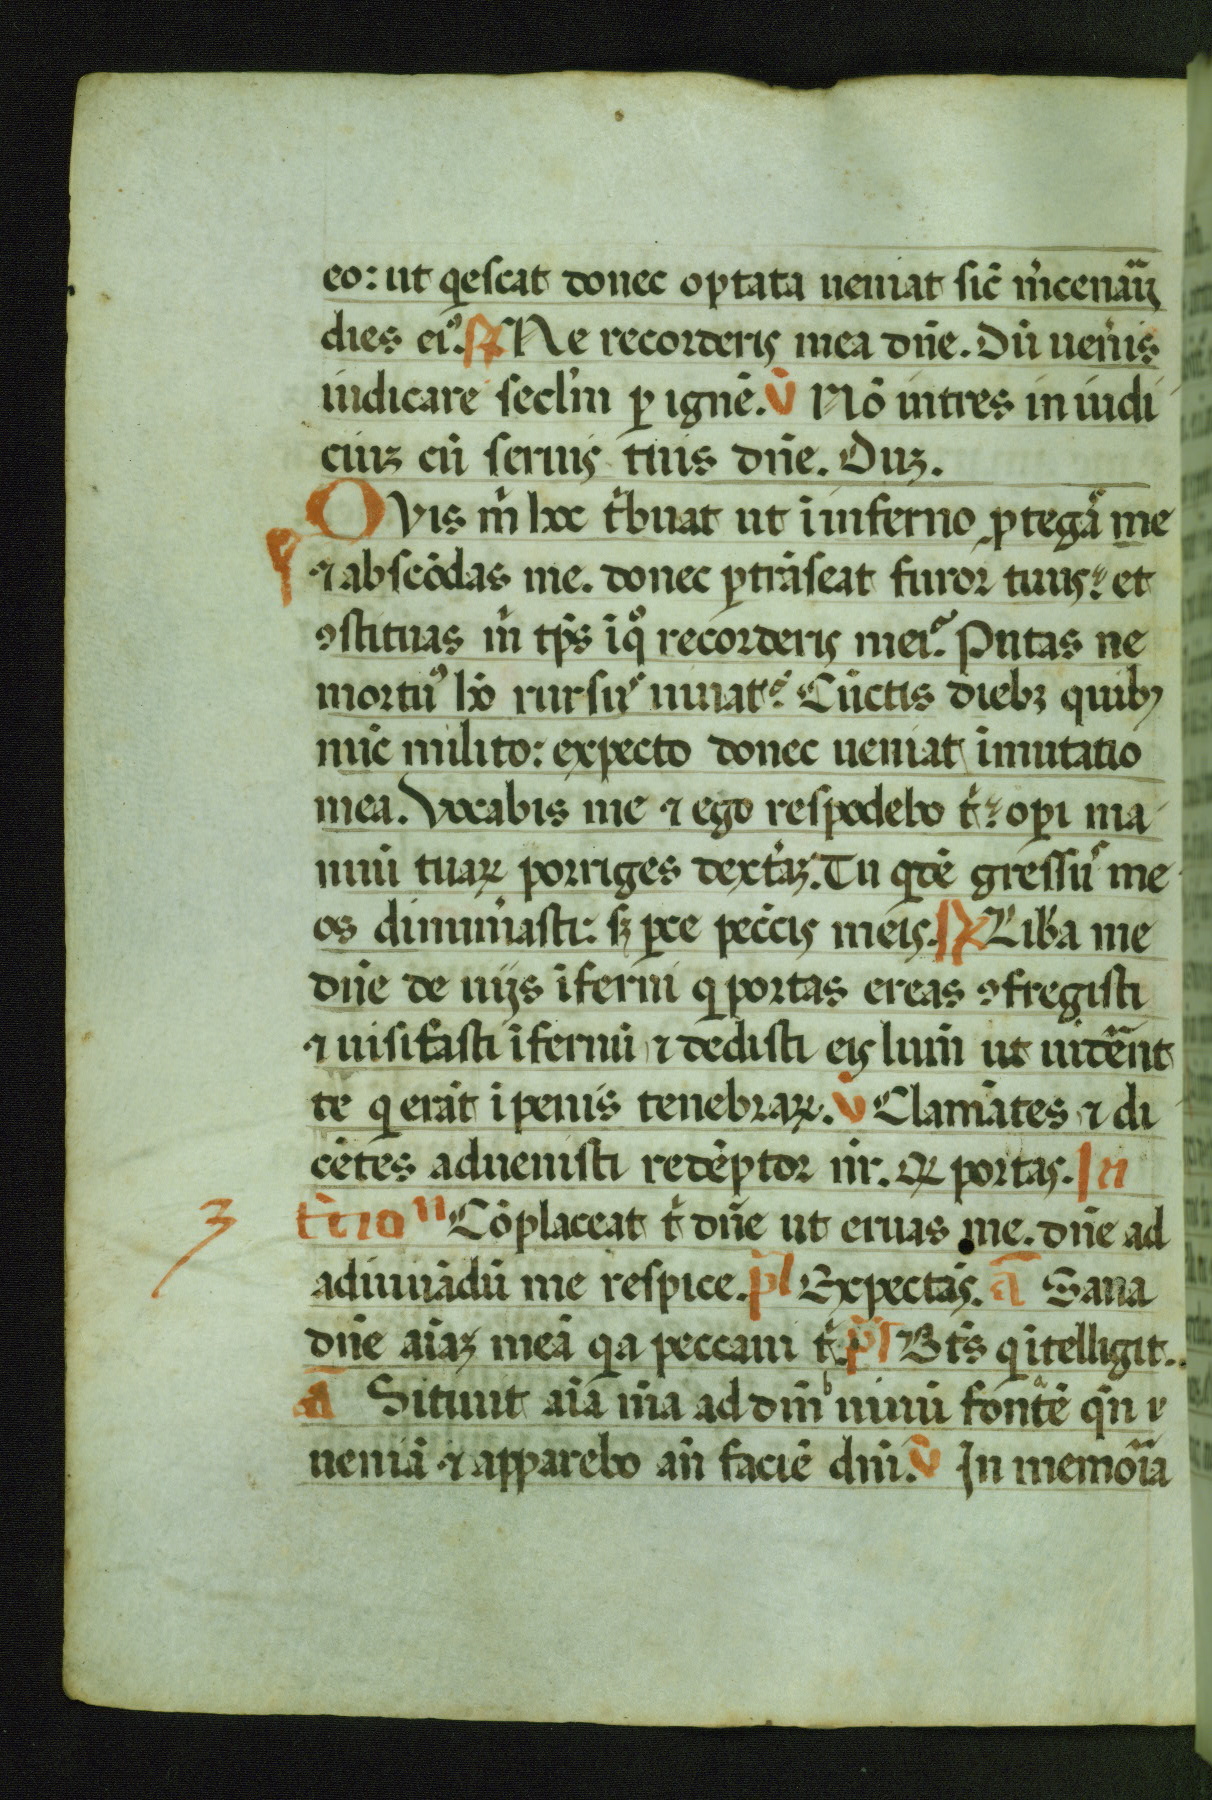 eo: ut q̇escat donec optata ueniat sic̄ m̄cenarij
dies eiꝰ. ℟ Ne recorderis mea dn̄e. Dū uen̄is
iudicare secl̄m ꝑ ignē. ℣ Nō intres in iudi
ciuꝫ cū seruis tuis dn̄e. Duꝫ.
Qvis m̄ hoc t̄buat ut ī inferno ꝓtegā me
⁊ abscōdas me. donec ꝑtrāseat furor tuus: et
ꝯstituas m̄ tp̄s ī qͦ recorderis mei? Putas ne
mortuꝰ hō rursuˢ uiuat? Cūctis diebꝫ quibꝫ
nūc milito: expecto donec ueniat īmutatio
mea. Vocabis me ⁊ ego respōdebo t̄: oꝑi ma
nuū tuaꝝ porriges dext̄aꝫ. Tu qͥdē gressuˢ me
os dinum̄asti: sꝫ ꝑce pecc̄is meis. ℟ Lib̄a me
dn̄e de uijs īferni qͥ portas ereas ꝯfregisti
⁊ uisitasti īfernū ⁊ dedisti eis lum̄ ut uidērnt
te qͥ erāt ī penis tenebraꝝ. ℣ Clamātes ⁊ di
cētes aduenisti redēptor nr̄. Qͥ portas. In
t̄tio nͦ Cōplaceat t̄ dn̄e ut eruas me. dn̄e ad
3
adiuuādū me respice. p̄s Expectās. a̅ Sana
dn̄e aīaꝫ meā qͥa peccaui t̄. p̄s Bt̄s qͥ ītelligit.
a̅ Sitiuit aīa m̄a ad dm̄ uiuū fontē qn̄ ue
ueniā ⁊ apparebo an̄ faciē dn̄i. ℣ In memoīa